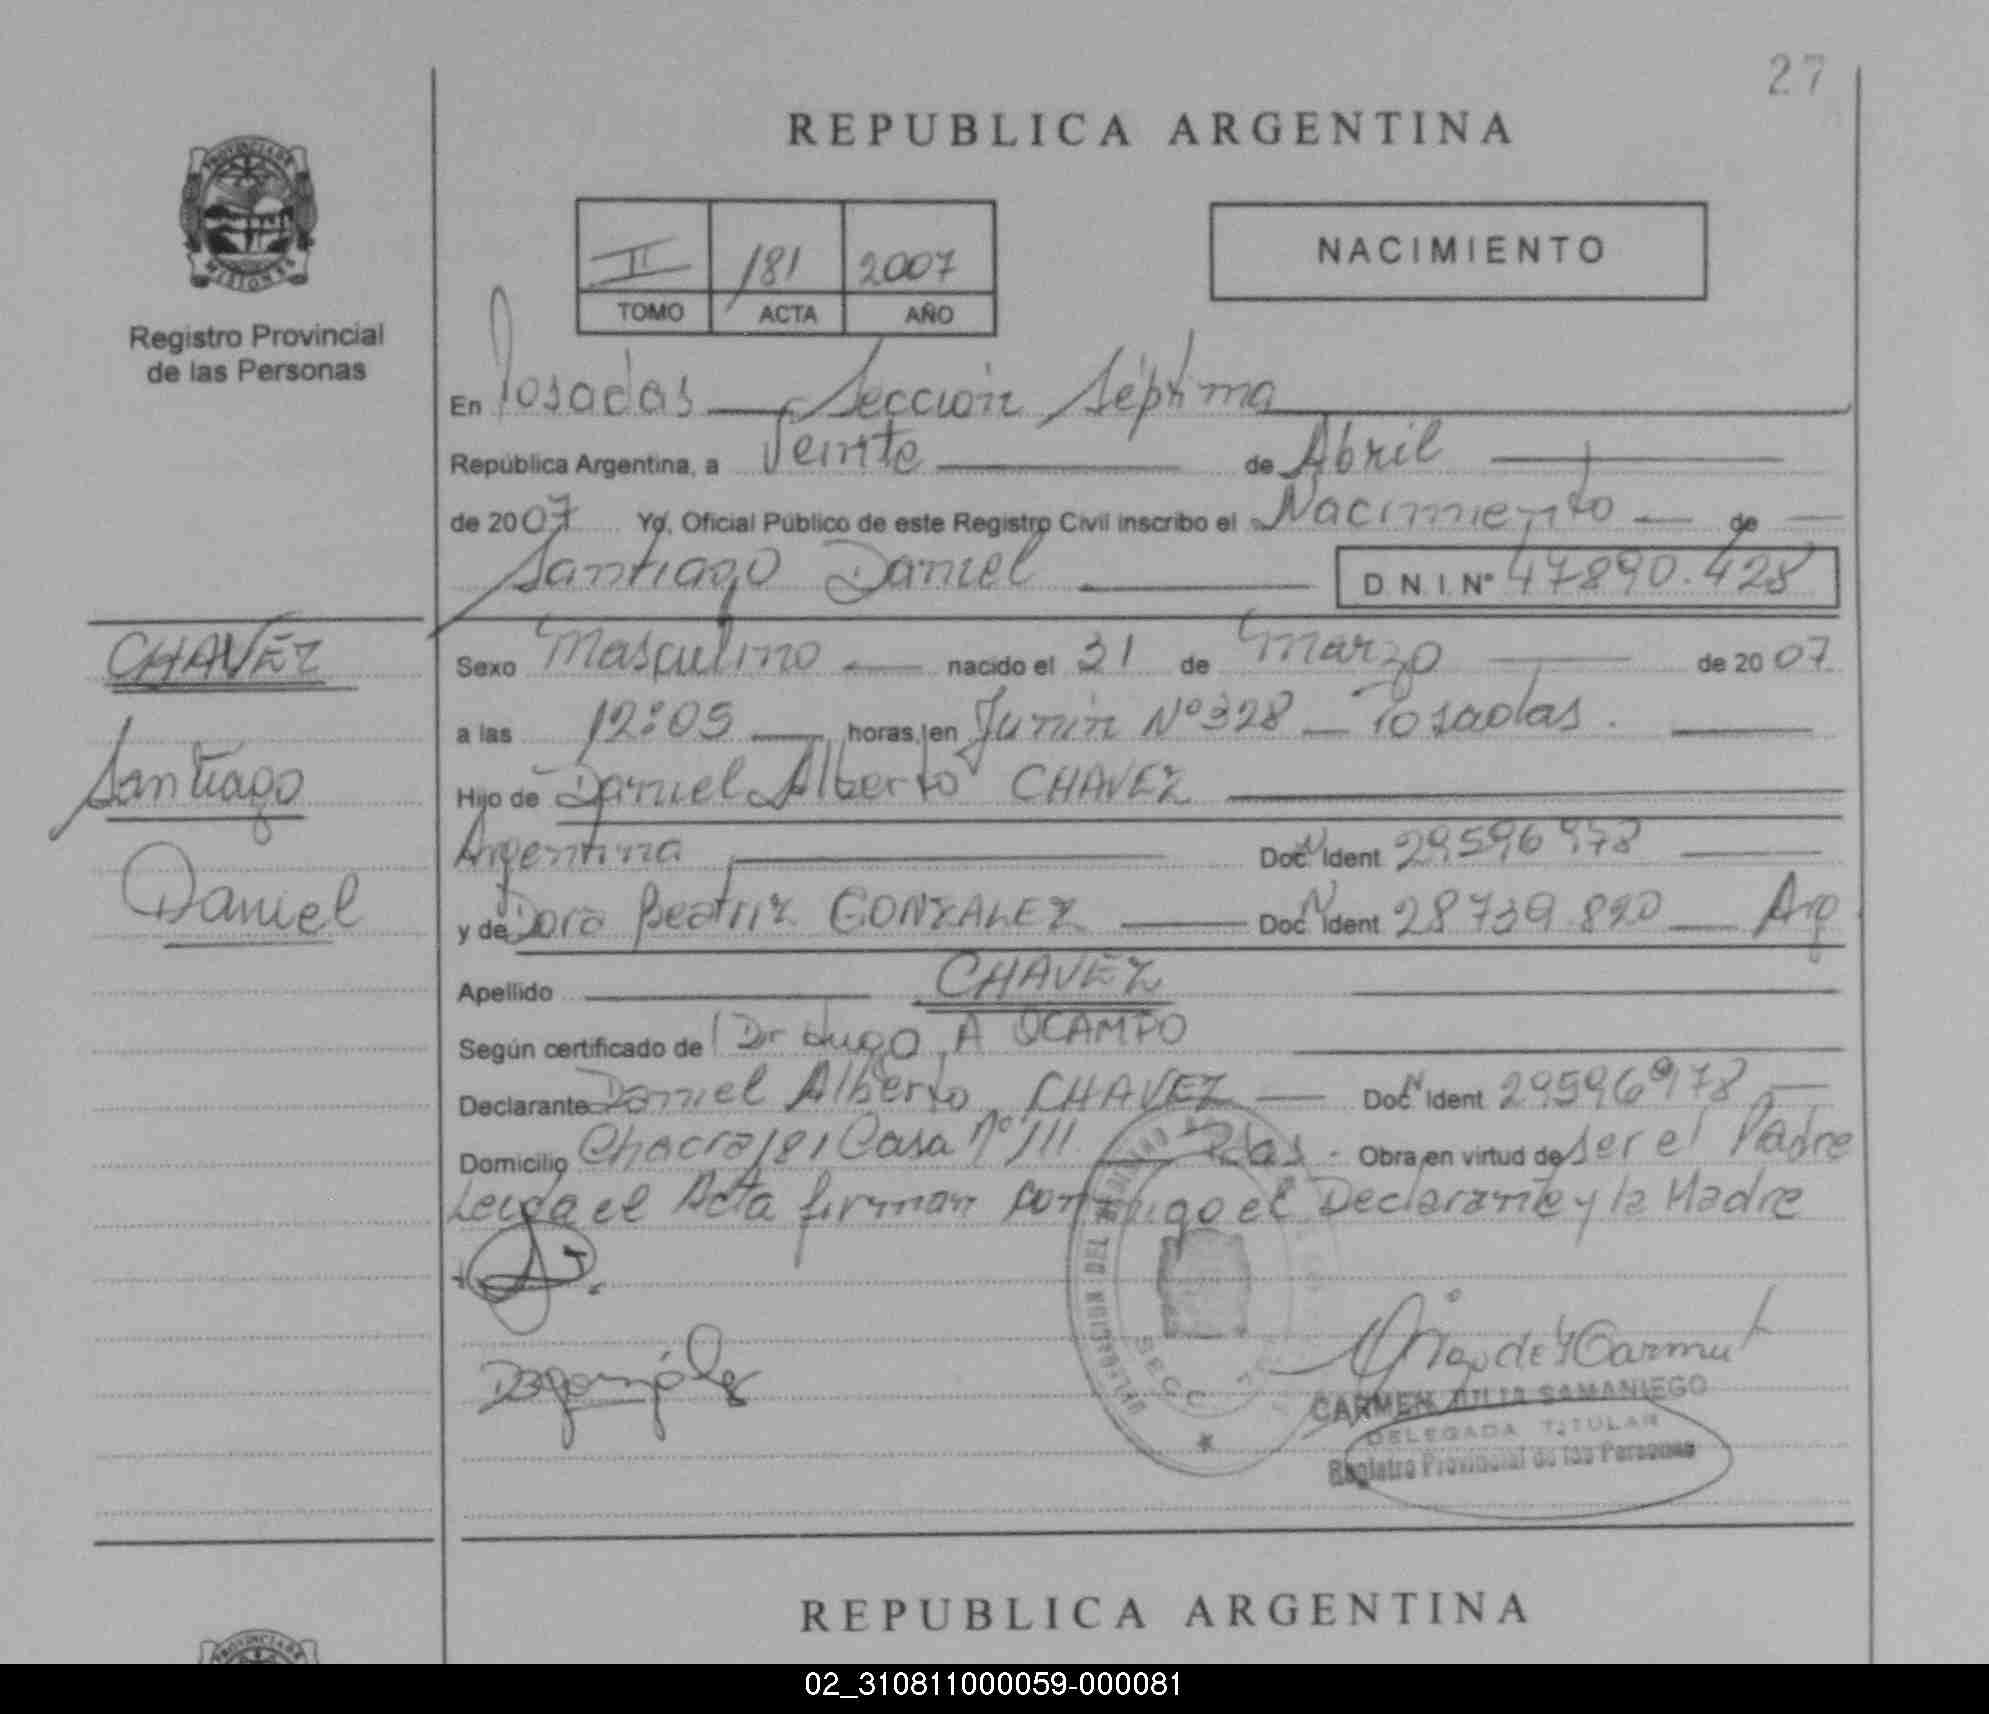 27
REPUBLICA ARGENTINA
PROVINCIA DE
MISIONES
Registro Provincial
de las Personas
II 181 2007
TOMO ACTA AÑO
NACIMIENTO
En Posadas — Sección Séptima
República Argentina, a Veinte — de Abril —
de 2007 Yo, Oficial Público de este Registro Civil inscribo el Nacimiento — de —
Santiago Daniel — D.N.I. N° 47890.428
CHAVEZ
Santiago
Daniel
Sexo Masculino — nacido el 31 de Marzo — de 2007
a las 12:05 — horas, en Junín N° 328 — Posadas. —
Hijo de Daniel Alberto CHAVEZ —
Argentina — Doc. N Ident 29596978 —
y de Dora Beatriz GONZALEZ — Doc. N Ident 28739.820 — Arg
Apellido — CHAVEZ —
Según certificado de Dr Hugo A OCAMPO —
Declarante Daniel Alberto CHAVEZ — Doc. N Ident 29596978 —
Domicilio Chacra 181 Casa N° 111 — Pdas - Obra en virtud de ser el Padre
Leida el Acta firman conmigo el Declarante y la Madre
DBGonzález
CARMEN JULIA SAMANIEGO
DELEGADA TITULAR
Registro Provincial de las Personas
REPUBLICA ARGENTINA
02_310811000059-000081